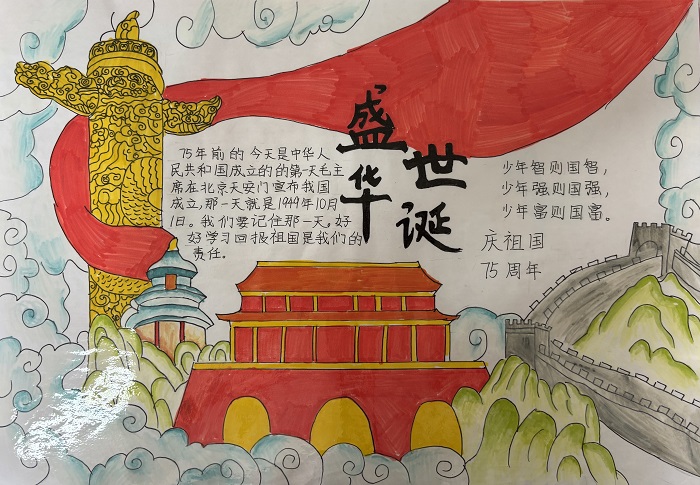 盛世华诞
75年前的今天是中华人
民共和国成立的的第一天毛主
席在北京天安门宣布我国
成立,那一天就是1949年10月
1日。我们要记住那一天,好
好学习回报祖国是我们的
责任.
少年智则国智,
少年强则国强,
少年富则国富。
庆祖国
75周年